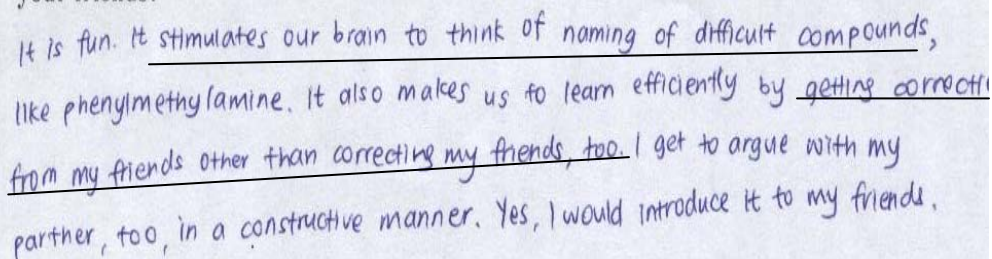 It is fun. It stimulates our brain to think of naming of difficult compounds,
like phenylmethylamine. It also makes us to learn efficiently by getting
from my friends other than correcting my friends, too. I get to argue with my
partner, too, in a constructive manner. Yes, I would introduce it to my friends.